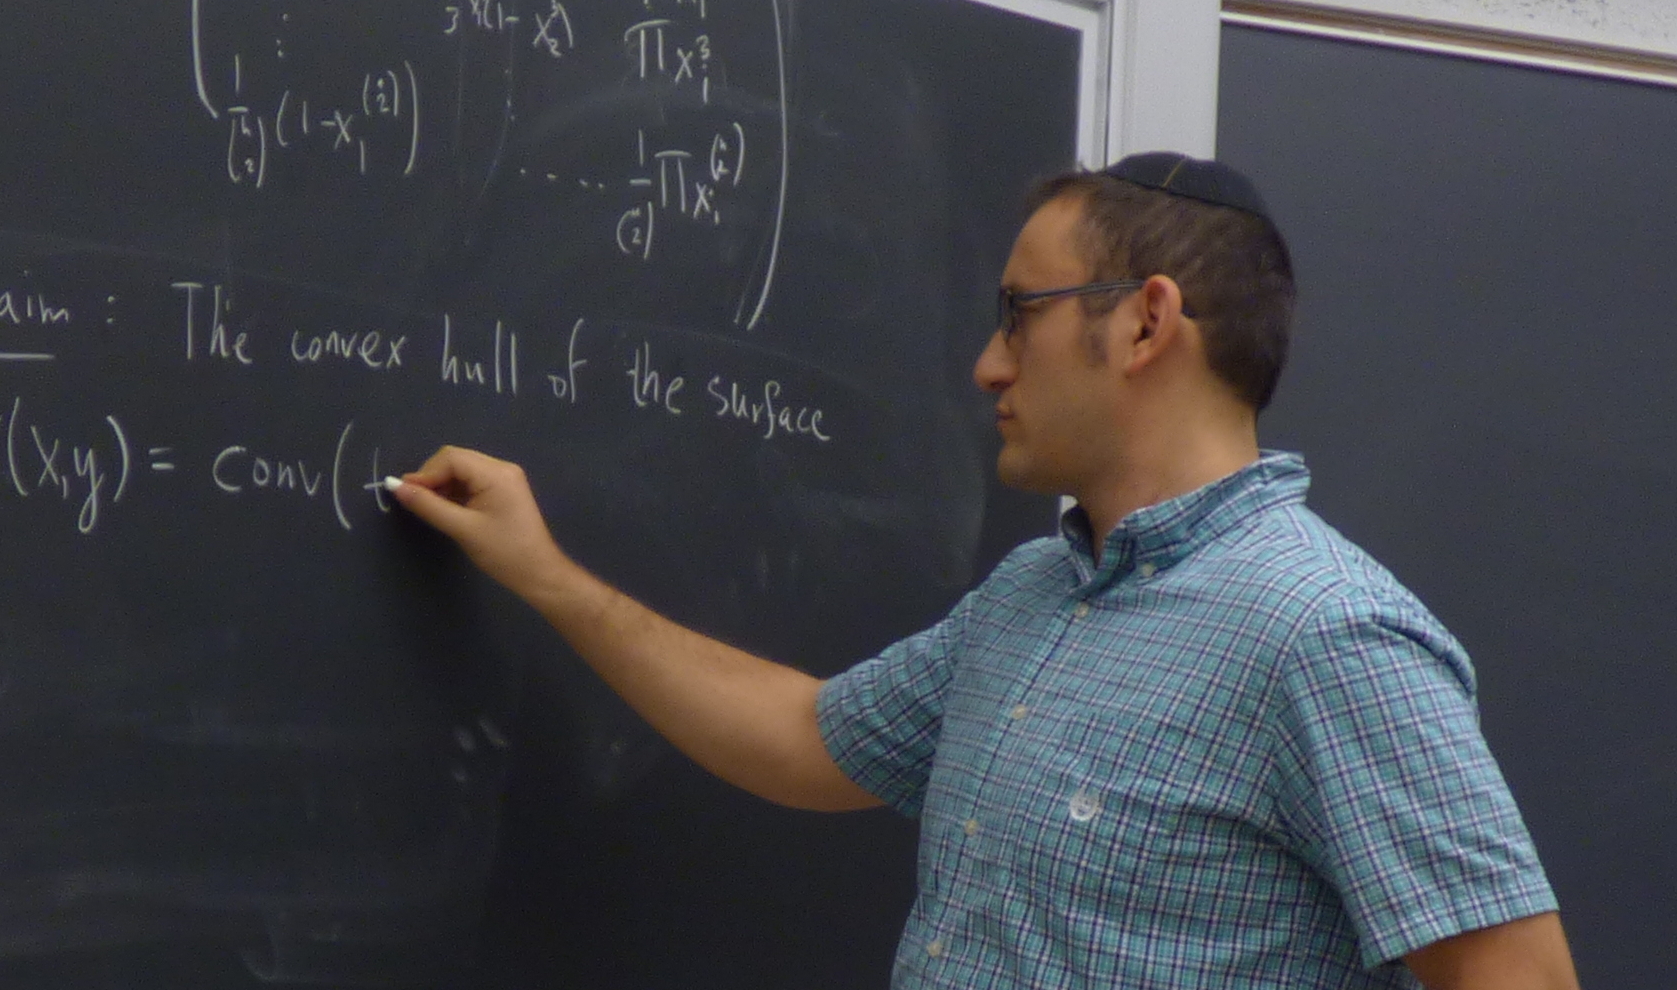 ⋮ 3 x(1 - x₂³) ∏ xᵢ³
1/(n 2) (1 - x₁^(n 2)) ⋮ .... 1/(n 2) ∏ xᵢ^(n 2)
aim : The convex hull of the surface
(x,y) = conv( t